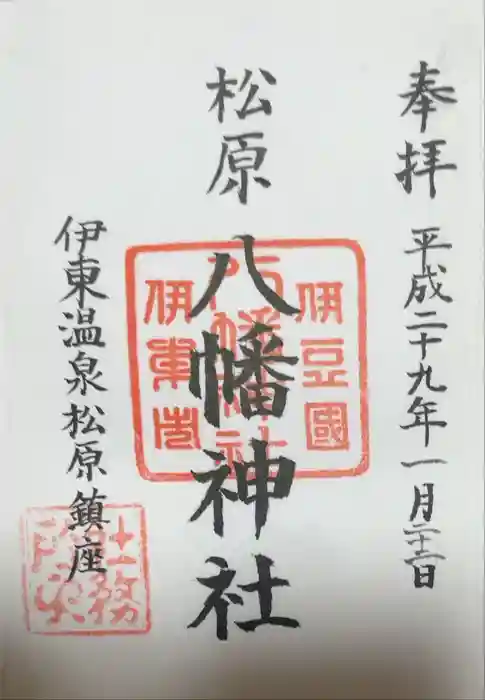 奉拝 平成二十九年一月二十二日
松原 八幡神社
伊東温泉松原鎮座
伊豆國
八幡神社
伊東市
社務